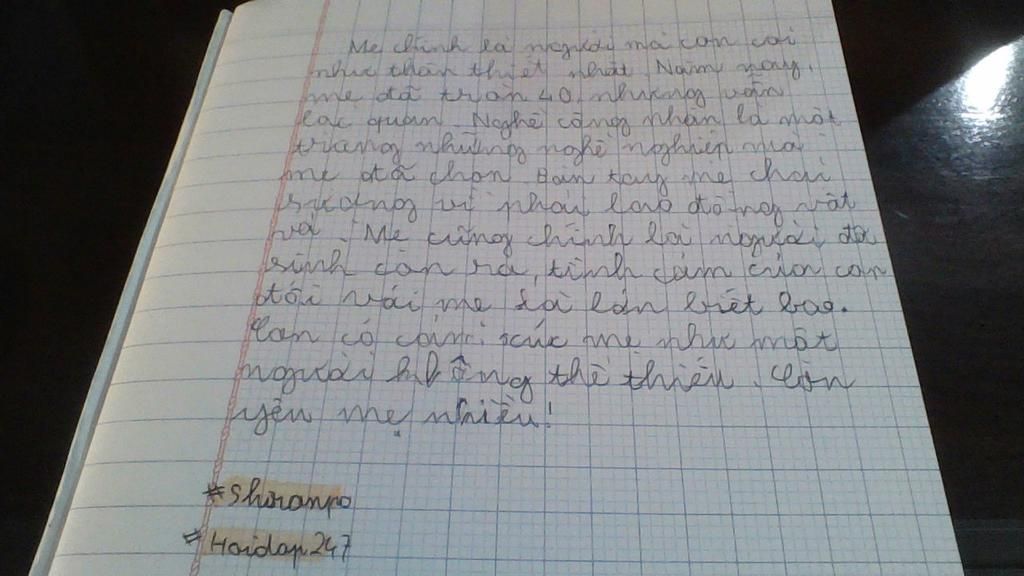 Mẹ chính là người mà con coi
như thân thiết nhất. Năm nay,
mẹ đã tròn 40 nhưng vẫn
lạc quan. Nghề công nhân là một
trong những nghề nghiệp mà
mẹ đã chọn. Bàn tay mẹ chai
sượng vì phải lao động vất
vả. Mẹ cũng chính là người đã
sinh con ra, tình cảm của con
đối với mẹ là lớn biết bao.
Con có cảm xúc mẹ như một
người không thể thiếu. Con
yêu mẹ nhiều!
#Shiranpo
#Hoidap247